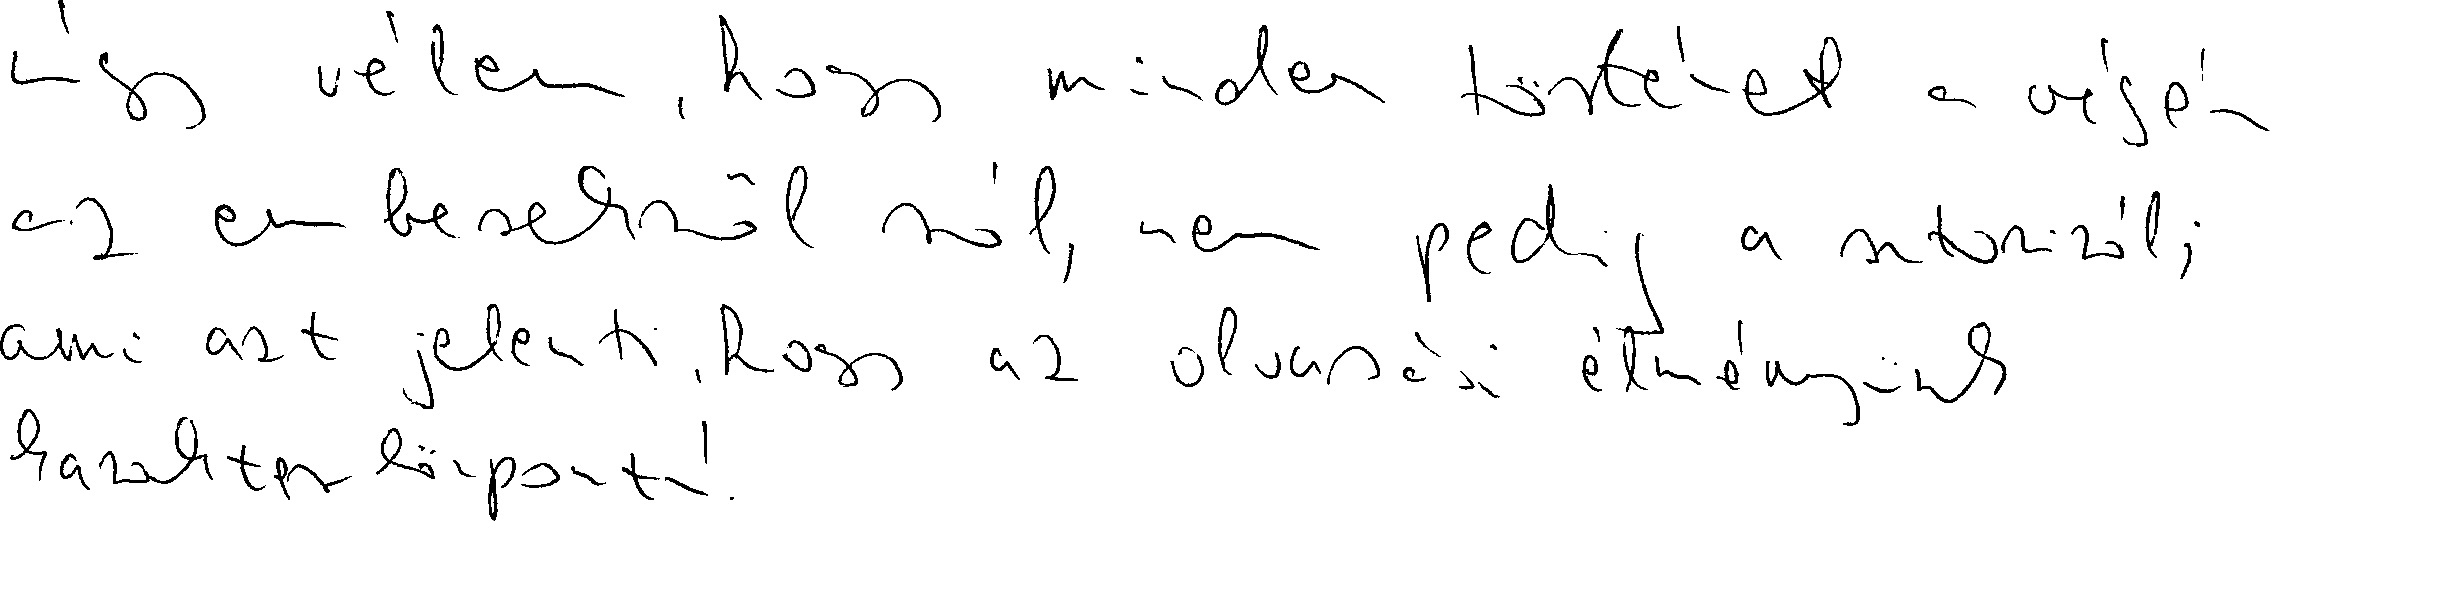 Úgy vélem, hogy minden történet a végén
az emberekről szól, nem pedig a sztoriról;
ami azt jelenti, hogy az olvasási élményünk
karakterközpontú.